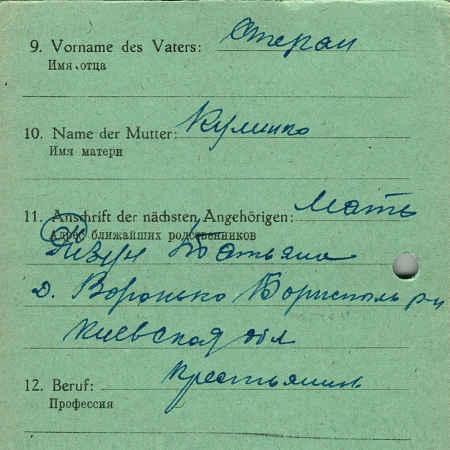 9. Vorname des Vaters: Степан
Имя отца
10. Name der Mutter: Кулинко
Имя матери
11. Anschrift der nächsten Angehörigen: Мать
Адрес ближайших родственников
Татьяна
д. Воронько Борисполь р-н
Киевская обл
12. Beruf: Крестьянин
Профессия